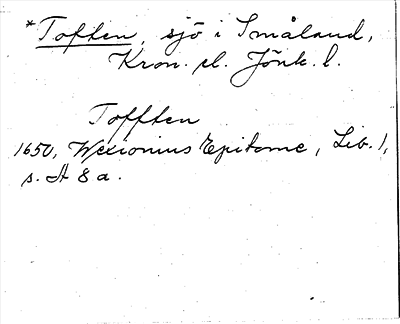 *Toften, sjö i Småland,
Kron. och Jönk. l.
Tofften
1650, Wexionius Epitome, Lib. 1,
s. A 8 a.